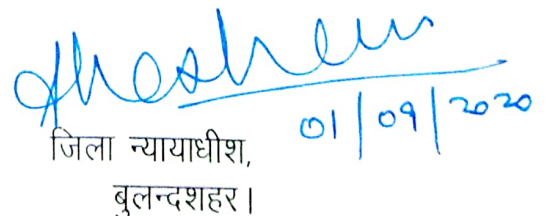 01/09/2020
जिला न्यायाधीश,
बुलन्दशहर।